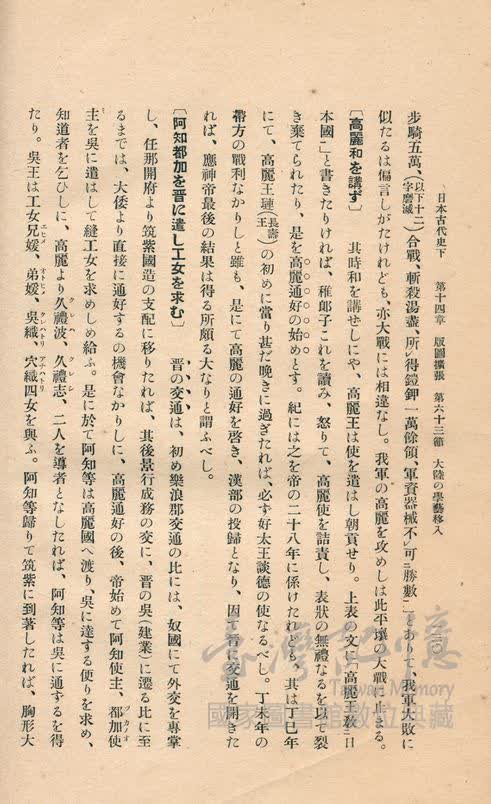 日本古代史下　第十四章　版圖擴張　第六十三節　大陸の學藝移入
二〇
步騎五萬、(以下十二字磨滅)合戰、斬殺湯盡、所レ得鎧鉀一萬餘領、軍資器械不レ可二勝數一」とありて、我軍大敗に
似たるは偏言しがたけれども、亦大戰には相違なし。我軍の高麗を攻めしは此平壤の大戰に止まる。
〔高麗和を講ず〕　其時和を講ぜしにや、高麗王は使を遣はし朝貢せり。上表の文に高麗王敎二日
本國一」と書きたりければ、稚郎子これを讀み、怒りて、高麗使を詰責し、表狀の無禮なるを以て裂
き棄てられたり、是を高麗通好の始めとす。紀には之を帝の二十八年に係けたれども、其は丁巳年
にて、高麗王璉(長壽王)の初めに當り甚だ晚きに過ぎたれば、必ず好太王談德の使なるべし。丁未年の
帶方の戰利なかりしと雖も、是にて高麗の通好を啓き、漢部の投歸となり、因て晉に交通を開きた
れば、應神帝最後の結果は得る所頗る大なりと謂ふべし。
〔阿知都加を晉に遣し工女を求む〕　晉の交通は、初め樂浪郡交通の比には、奴國にて外交を專掌
し、任那開府より筑紫國造の支配に移りたれば、其後景行成務の交に、晉の吳(建業)に遷る比に至
るまでは、大倭より直接に通好するの機會なかりしに、高麗通好の後、帝始めて阿知使主、都加使
主を吳に遣はして縫工女を求めしめ給ふ。是に於て阿知等は高麗國へ渡り、吳に達する便りを求め、
知道者を乞ひしに、高麗より久禮波、久禮志、二人を導者となしたれば、阿知等は吳に通ずるを得
たり。吳王は工女兄媛、弟媛、吳織、穴織四女を與ふ。阿知等歸りて筑紫に到著したれば、胸形大
臺灣記憶
Taiwan Memory
國家圖書館數位典藏